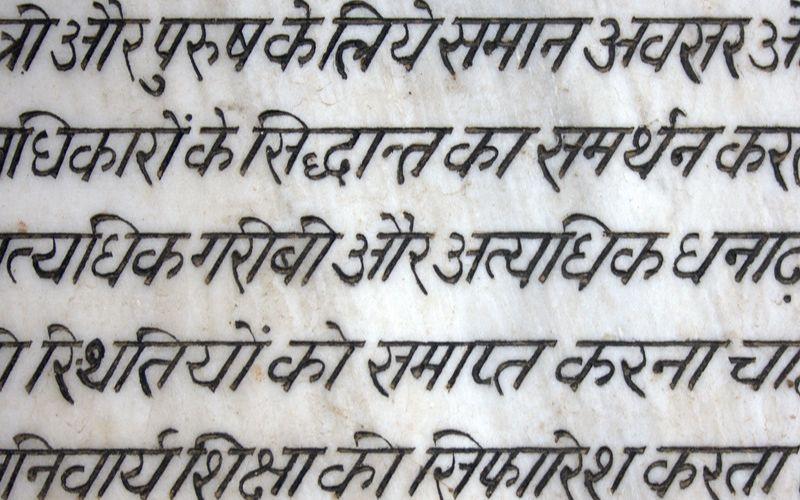 त्री और पुरुष के लिये समान अवसर औ
धिकारों के सिद्धान्त का समर्थन करत
त्यधिक गरीबी और अत्यधिक धनाढ़
ी स्थितियों को समाप्त करना चा
निवार्य शिक्षा की सिफारिश करता